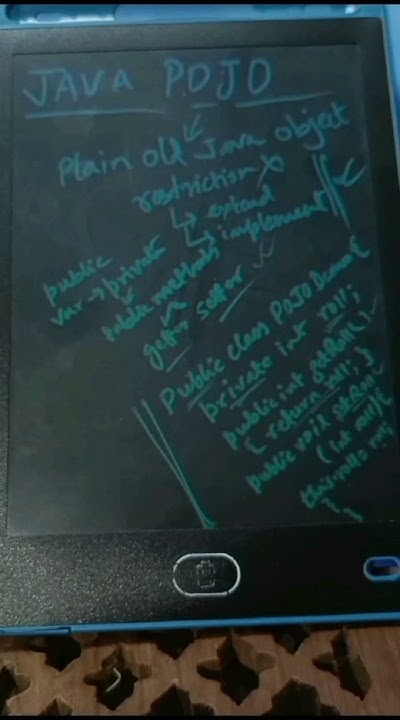 JAVA POJO
Plain old Java object
restriction x
↳ extend
↳ implement
public
var → private
public methods
getter setter ✓
Public class POJO Demo {
private int roll;
public int getRoll()
{ return roll; }
public void setRoll
(int roll) {
this.roll = roll;
}
}